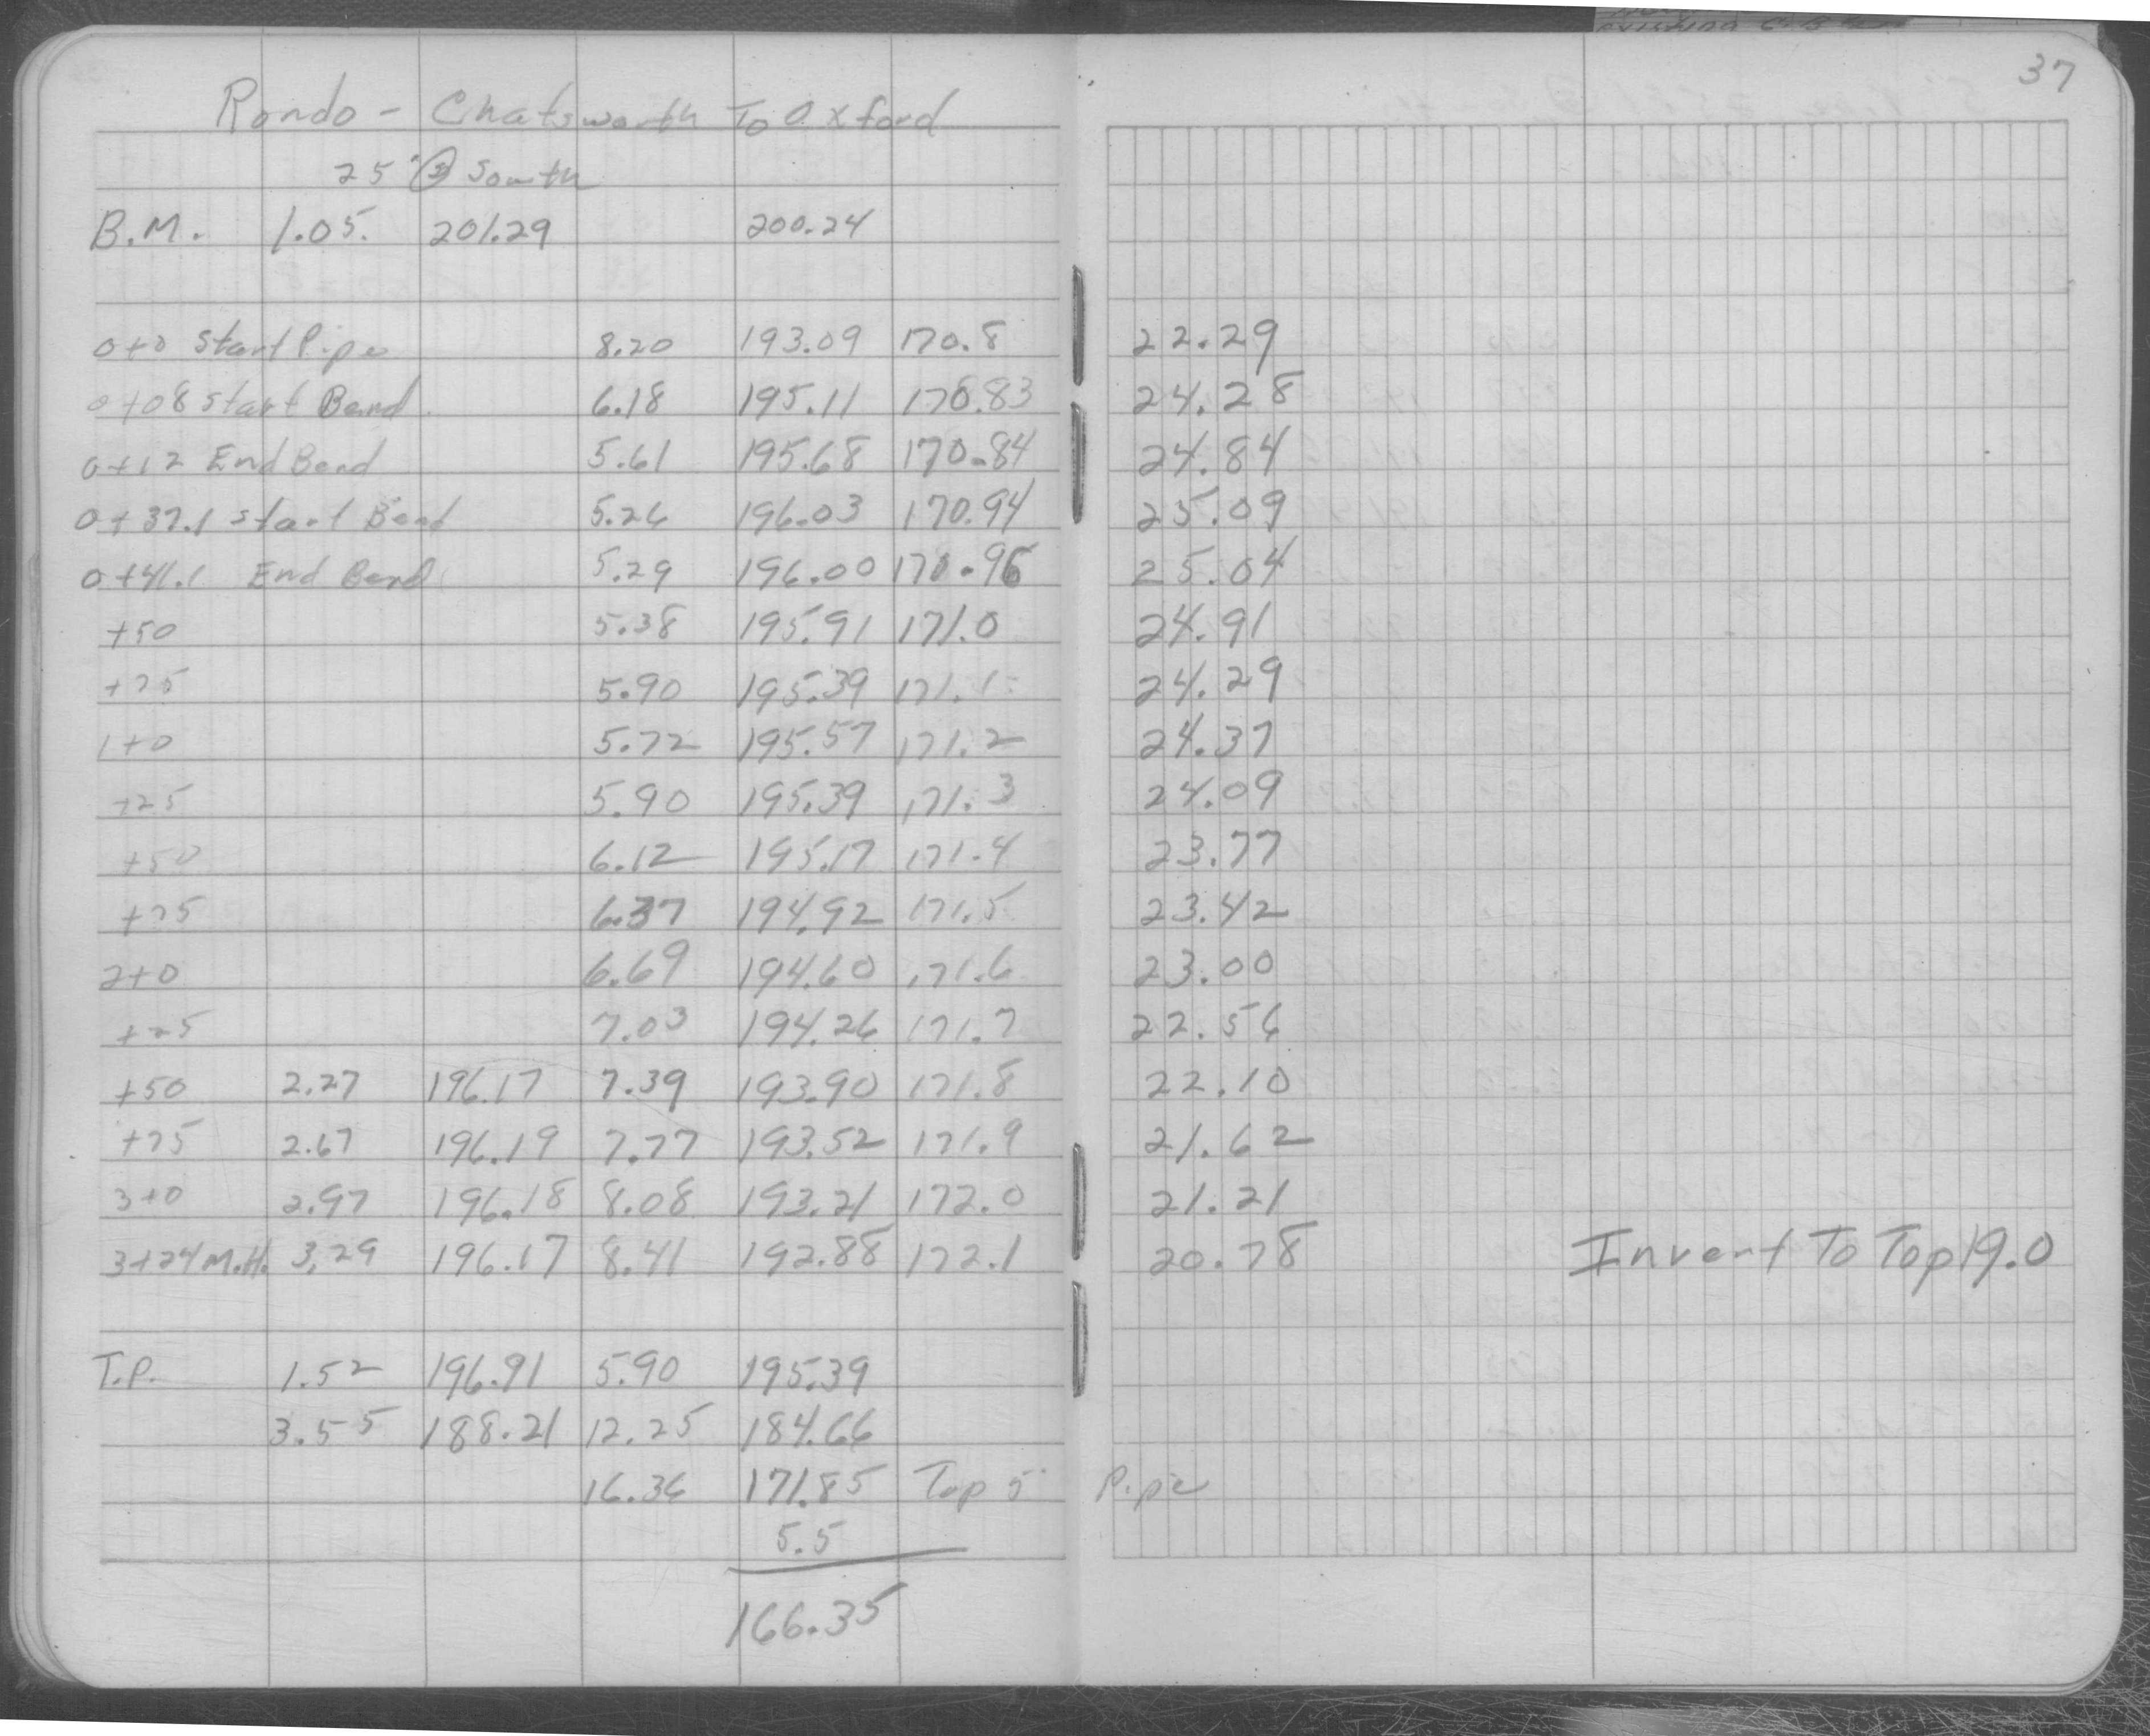 37
Rondo - Chatsworth To Oxford
25' South
B.M. 1.05. 201.29 200.24
0+0 Start Pipe 8.20 193.09 170.8 22.29
0+08 Start Bend 6.18 195.11 170.83 24.28
0+12 End Bend 5.61 195.68 170.84 24.84
0+37.1 Start Bend 5.26 196.03 170.94 25.09
0+41.1 End Bend 5.29 196.00 170.96 25.04
+50 5.38 195.91 171.0 24.91
+75 5.90 195.39 171.1 24.29
1+0 5.72 195.57 171.2 24.37
+25 5.90 195.39 171.3 24.09
+50 6.12 195.17 171.4 23.77
+75 6.37 194.92 171.5 23.42
2+0 6.69 194.60 171.6 23.00
+25 7.03 194.26 171.7 22.56
+50 2.27 196.17 7.39 193.90 171.8 22.10
+75 2.67 196.19 7.77 193.52 171.9 21.62
3+0 2.97 196.18 8.08 193.21 172.0 21.21
3+24 M.H. 3.29 196.17 8.41 192.88 172.1 20.78 Invert To Top 19.0
T.P. 1.52 196.91 5.90 195.39
3.55 188.21 12.25 184.66
16.36 171.85 Top 5' Pipe
5.5
166.35